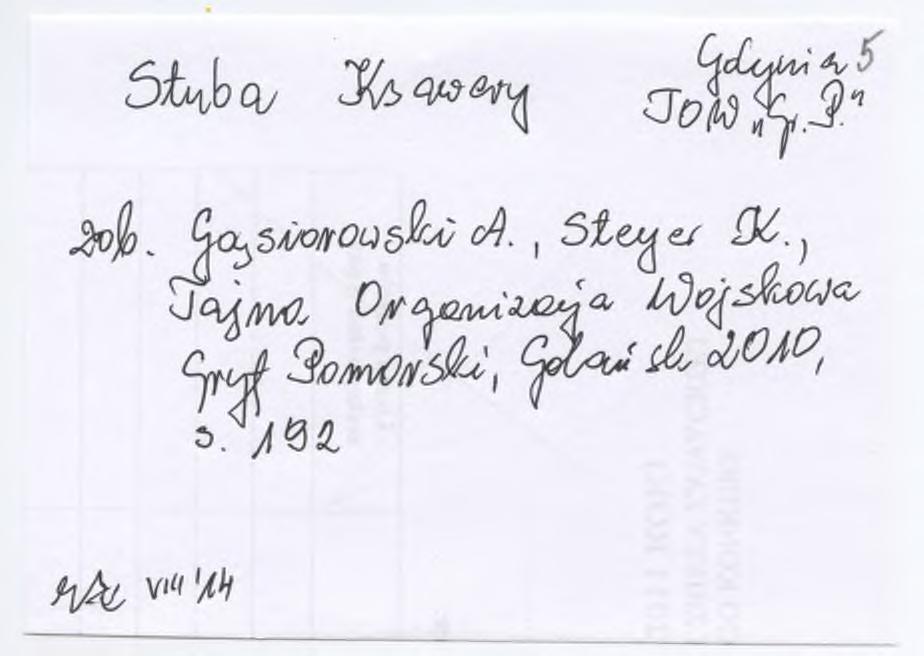 Stuba Ksawery
Gdynia 5
TOW "Gr. P."
zob. Gąsiorowski A., Steyer K.,
Tajna Organizacja Wojskowa
Gryf Pomorski, Gdańsk 2010,
s. 192
VIII '14